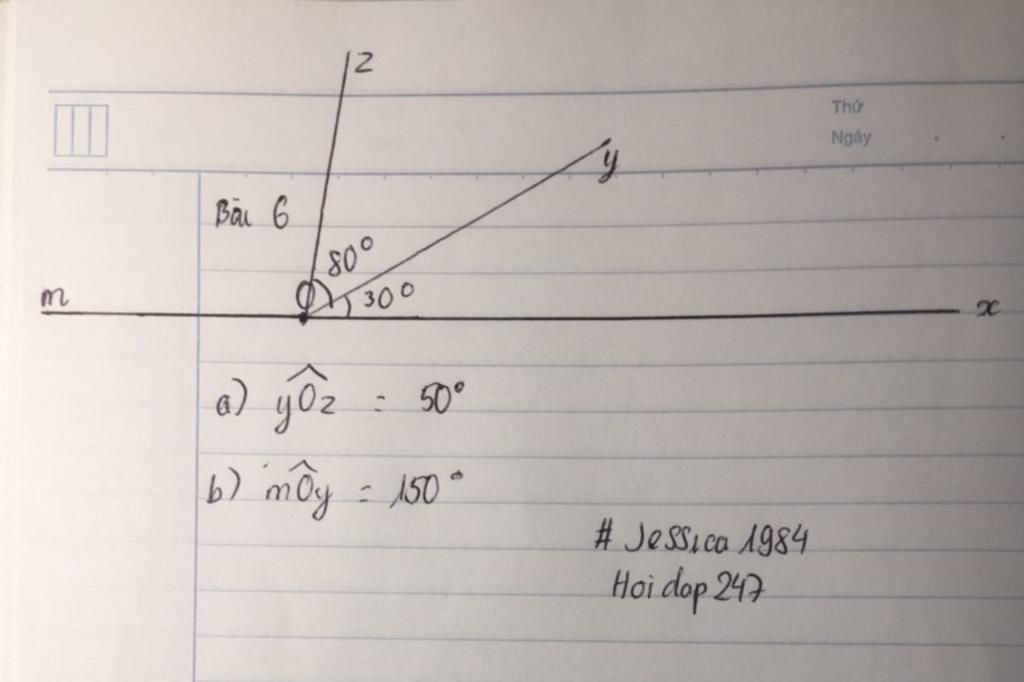 z
Thứ
Ngày
y
Bài 6
80°
m
O
30°
x
a) yOz = 50°
b) mOy = 150°
# Jessica 1984
Hoi dap 247